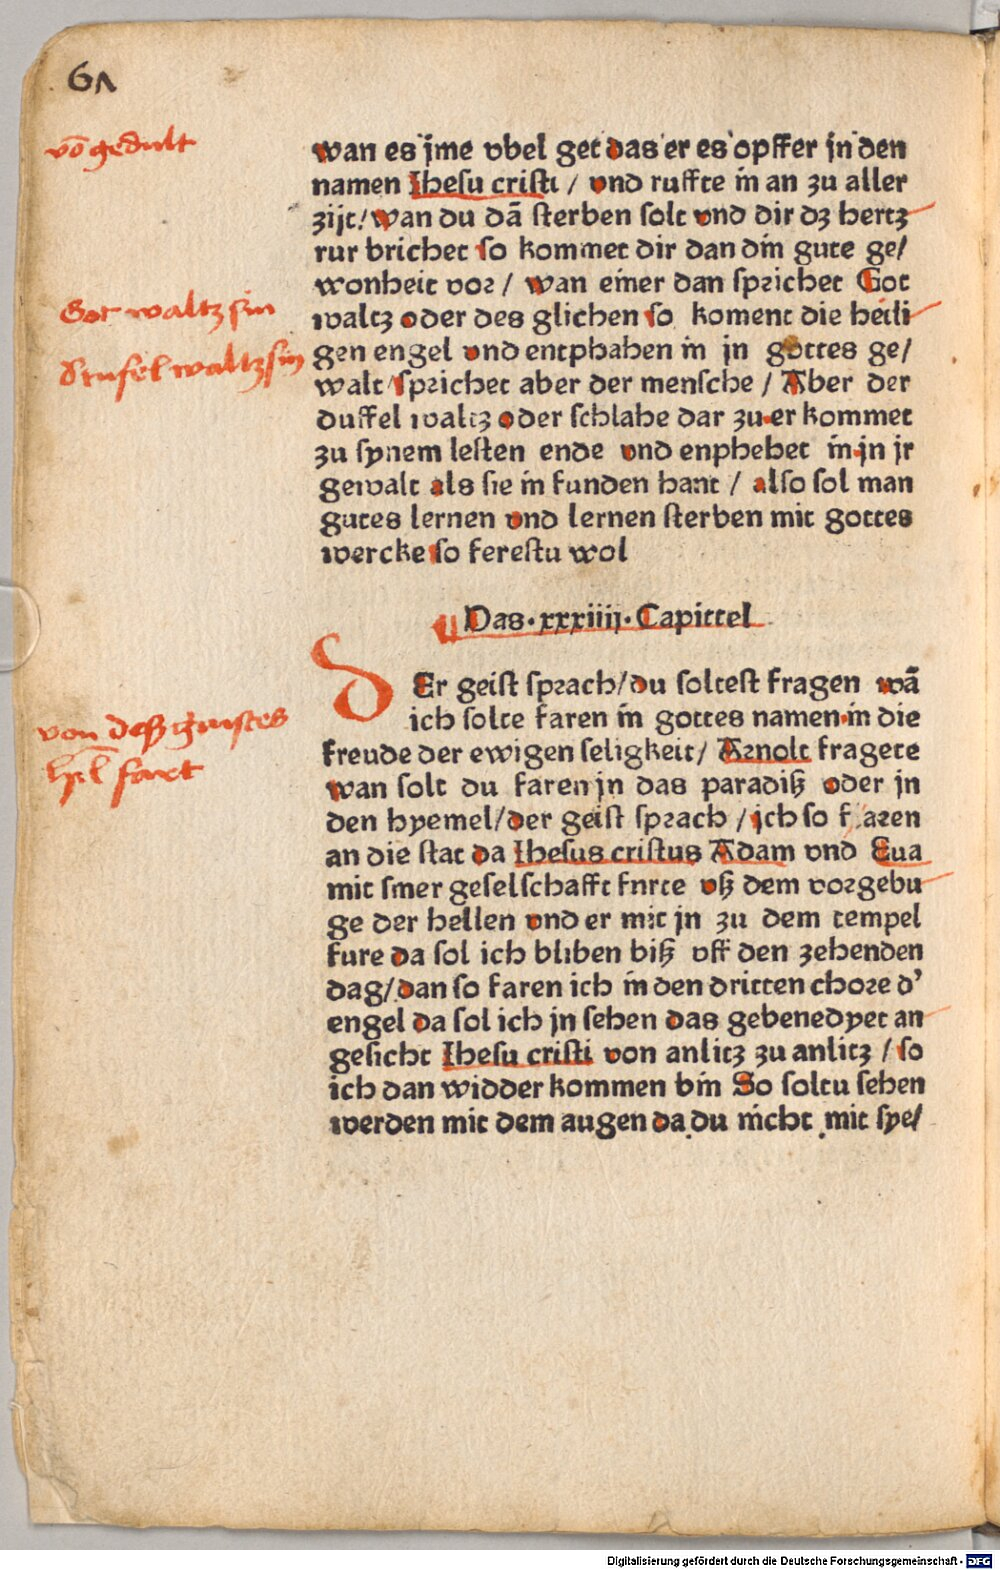 61
võ gedult
wan es jme vbel get das er es opffer jn den
namen Jhesu cristi / vnd ruffte in an zu aller
zijt / wan du dā sterben solt vnd dir dz hertz
rur brichet so kommet dir dan din gute ge/
wonheit vor / wan einer dan sprichet Got
Got waltz sin
waltz oder des glichen so koment die heili
Teufel waltz sin
gen engel vnd entphahen in jn gottes ge/
walt sprichet aber der mensche / Aber der
duffel waltz oder schlahe dar zu er kommet
zu synem lesten ende vnd enphehet in jn jr
gewalt als sie in funden hant / also sol man
gutes lernen vnd lernen sterben mit gottes
wercke so ferestu wol
Das · xxxiiij · Capittel
DEr geist sprach / du soltest fragen wā
von deß geistes
ich solte faren in gottes namen in die
hīl fart
freude der ewigen seligkeit / Arnolt fragete
wan solt du faren jn das paradiß oder jn
den hyemel / der geist sprach / jch so faren
an die stat da Jhesus cristus Adam vnd Eua
mit siner geselschafft furte vß dem vorgebu
ge der hellen vnd er mit jn zu dem tempel
fure da sol ich bliben biß vff den zehenden
dag / dan so faren ich in den dritten chore d'
engel da sol ich jn sehen das gebenedyet an
gesicht Jhesu cristi von anlitz zu anlitz / so
ich dan widder kommen bin So soltu sehen
werden mit dem augen da du nicht mit spe/
Digitalisierung gefördert durch die Deutsche Forschungsgemeinschaft - DFG